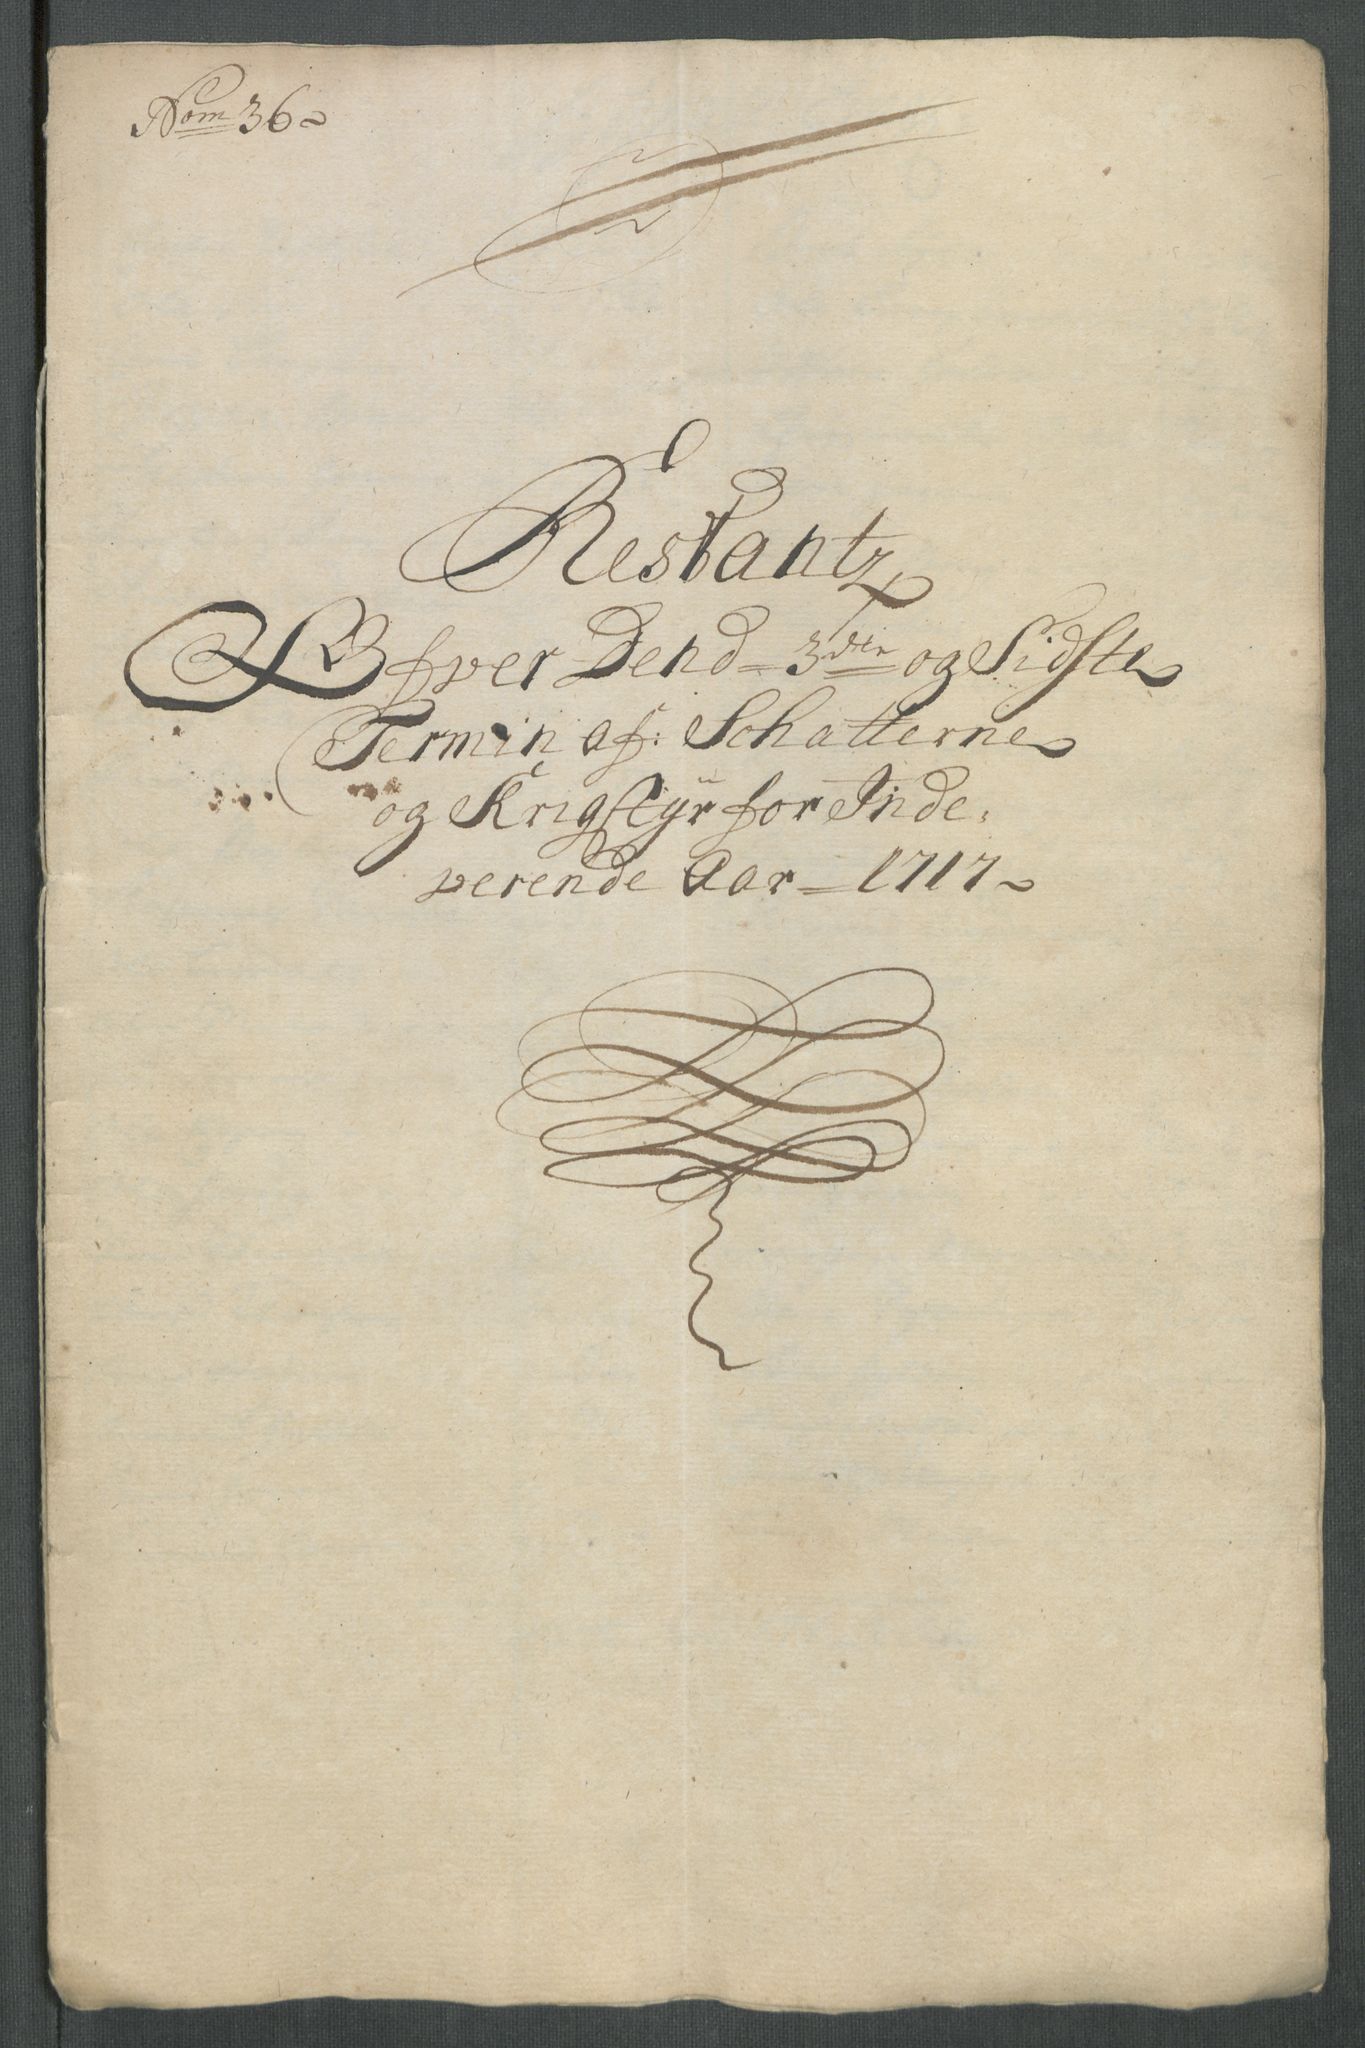 Nom 36
Restantz
Ofver Dend 3die og Sidste
Termin af: Schatterne
og Krigstÿr for Inde:
verende Aar 1717